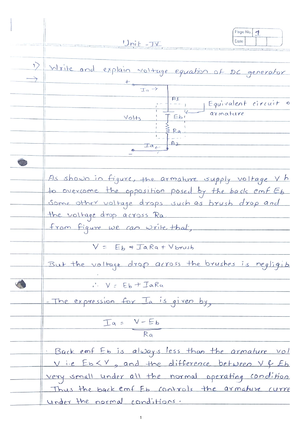 Page No. 1
Date
Unit - IV
1) Write and explain voltage equation of DC generator
+
Ia →
Volts
Eb
Ra
Equivalent circuit
armature
Ia
-
As shown in figure, the armature supply voltage V h
to overcome the opposition posed by the back emf Eb
Some other voltage drops such as brush drop and
the voltage drop across Ra
from figure we can write that,
V = Eb + IaRa + Vbrush
But the voltage drop across the brushes is negligib
∴ V = Eb + IaRa
The expression for Ia is given by,
Ia = V - Eb
Ra
Back emf Eb is always less than the armature vol
V i.e Eb < V, and the difference between V & Eb
very small under all the normal operating condition
Thus the back emf Eb controls the armature curre
under the normal conditions.